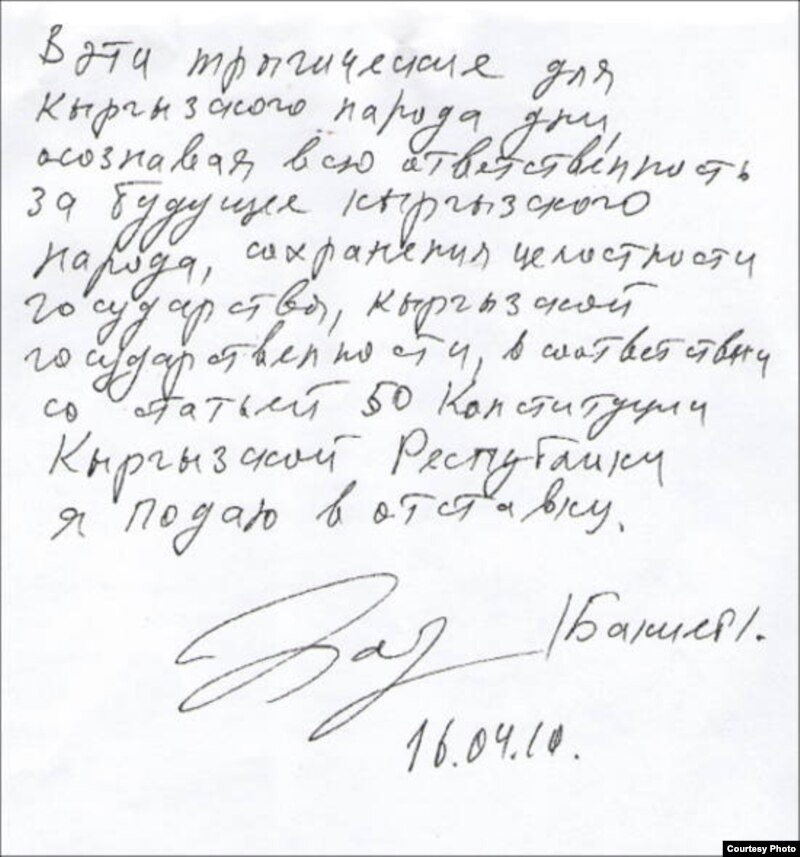 В эти трыгические для
Кыргызского народа дни,
осознавая всю ответственность
за будущее кыргызского
народа, сохранения целостности
государства, кыргызской
государственности, в соответствии
со статьей 50 Конституции
Кыргызской Республики
я подаю в отставку.
/Бакиев/.
16.04.10.
Courtesy Photo